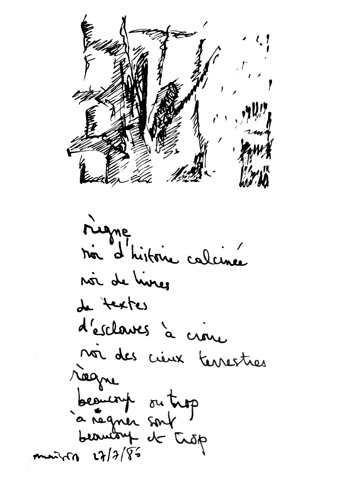 règne
roi d'histoire calcinée
roi de livres
de textes
d'esclaves à croire
roi des cieux terrestres
règne
beaucoup ou trop
à régner sont
beaucoup et trop
maison 27/7/86